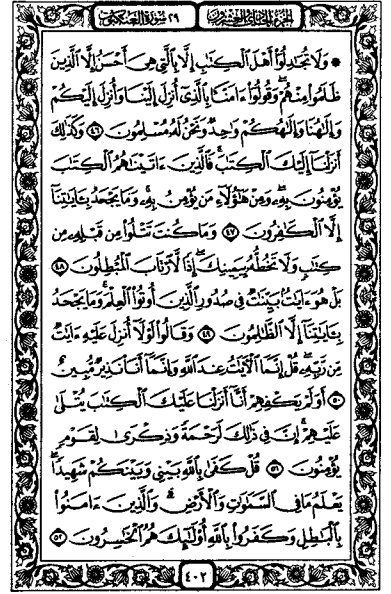 الجزء الحادي والعشرون ٢٩ سورة العنكبوت
۞ وَلَا تُجَٰدِلُوٓا۟ أَهْلَ ٱلْكِتَٰبِ إِلَّا بِٱلَّتِى هِىَ أَحْسَنُ إِلَّا ٱلَّذِينَ
ظَلَمُوا۟ مِنْهُمْ ۖ وَقُولُوٓا۟ ءَامَنَّا بِٱلَّذِىٓ أُنزِلَ إِلَيْنَا وَأُنزِلَ إِلَيْكُمْ
وَإِلَٰهُنَا وَإِلَٰهُكُمْ وَٰحِدٌ وَنَحْنُ لَهُۥ مُسْلِمُونَ ٤٦ وَكَذَٰلِكَ
أَنزَلْنَآ إِلَيْكَ ٱلْكِتَٰبَ ۚ فَٱلَّذِينَ ءَاتَيْنَٰهُمُ ٱلْكِتَٰبَ
يُؤْمِنُونَ بِهِۦ ۖ وَمِنْ هَٰٓؤُلَآءِ مَن يُؤْمِنُ بِهِۦ ۚ وَمَا يَجْحَدُ بِـَٔايَٰتِنَآ
إِلَّا ٱلْكَٰفِرُونَ ٤٧ وَمَا كُنتَ تَتْلُوا۟ مِن قَبْلِهِۦ مِن
كِتَٰبٍ وَلَا تَخُطُّهُۥ بِيَمِينِكَ ۖ إِذًا لَّٱرْتَابَ ٱلْمُبْطِلُونَ ٤٨
بَلْ هُوَ ءَايَٰتٌۢ بَيِّنَٰتٌ فِى صُدُورِ ٱلَّذِينَ أُوتُوا۟ ٱلْعِلْمَ ۚ وَمَا يَجْحَدُ
بِـَٔايَٰتِنَآ إِلَّا ٱلظَّٰلِمُونَ ٤٩ وَقَالُوا۟ لَوْلَآ أُنزِلَ عَلَيْهِ ءَايَٰتٌ
مِّن رَّبِّهِۦ ۖ قُلْ إِنَّمَا ٱلْءَايَٰتُ عِندَ ٱللَّهِ وَإِنَّمَآ أَنَا۠ نَذِيرٌ مُّبِينٌ
٥٠ أَوَلَمْ يَكْفِهِمْ أَنَّآ أَنزَلْنَا عَلَيْكَ ٱلْكِتَٰبَ يُتْلَىٰ
عَلَيْهِمْ ۚ إِنَّ فِى ذَٰلِكَ لَرَحْمَةً وَذِكْرَىٰ لِقَوْمٍ
يُؤْمِنُونَ ٥١ قُلْ كَفَىٰ بِٱللَّهِ بَيْنِى وَبَيْنَكُمْ شَهِيدًا ۖ
يَعْلَمُ مَا فِى ٱلسَّمَٰوَٰتِ وَٱلْأَرْضِ ۗ وَٱلَّذِينَ ءَامَنُوا۟
بِٱلْبَٰطِلِ وَكَفَرُوا۟ بِٱللَّهِ أُو۟لَٰٓئِكَ هُمُ ٱلْخَٰسِرُونَ ٥٢
٤٠٢